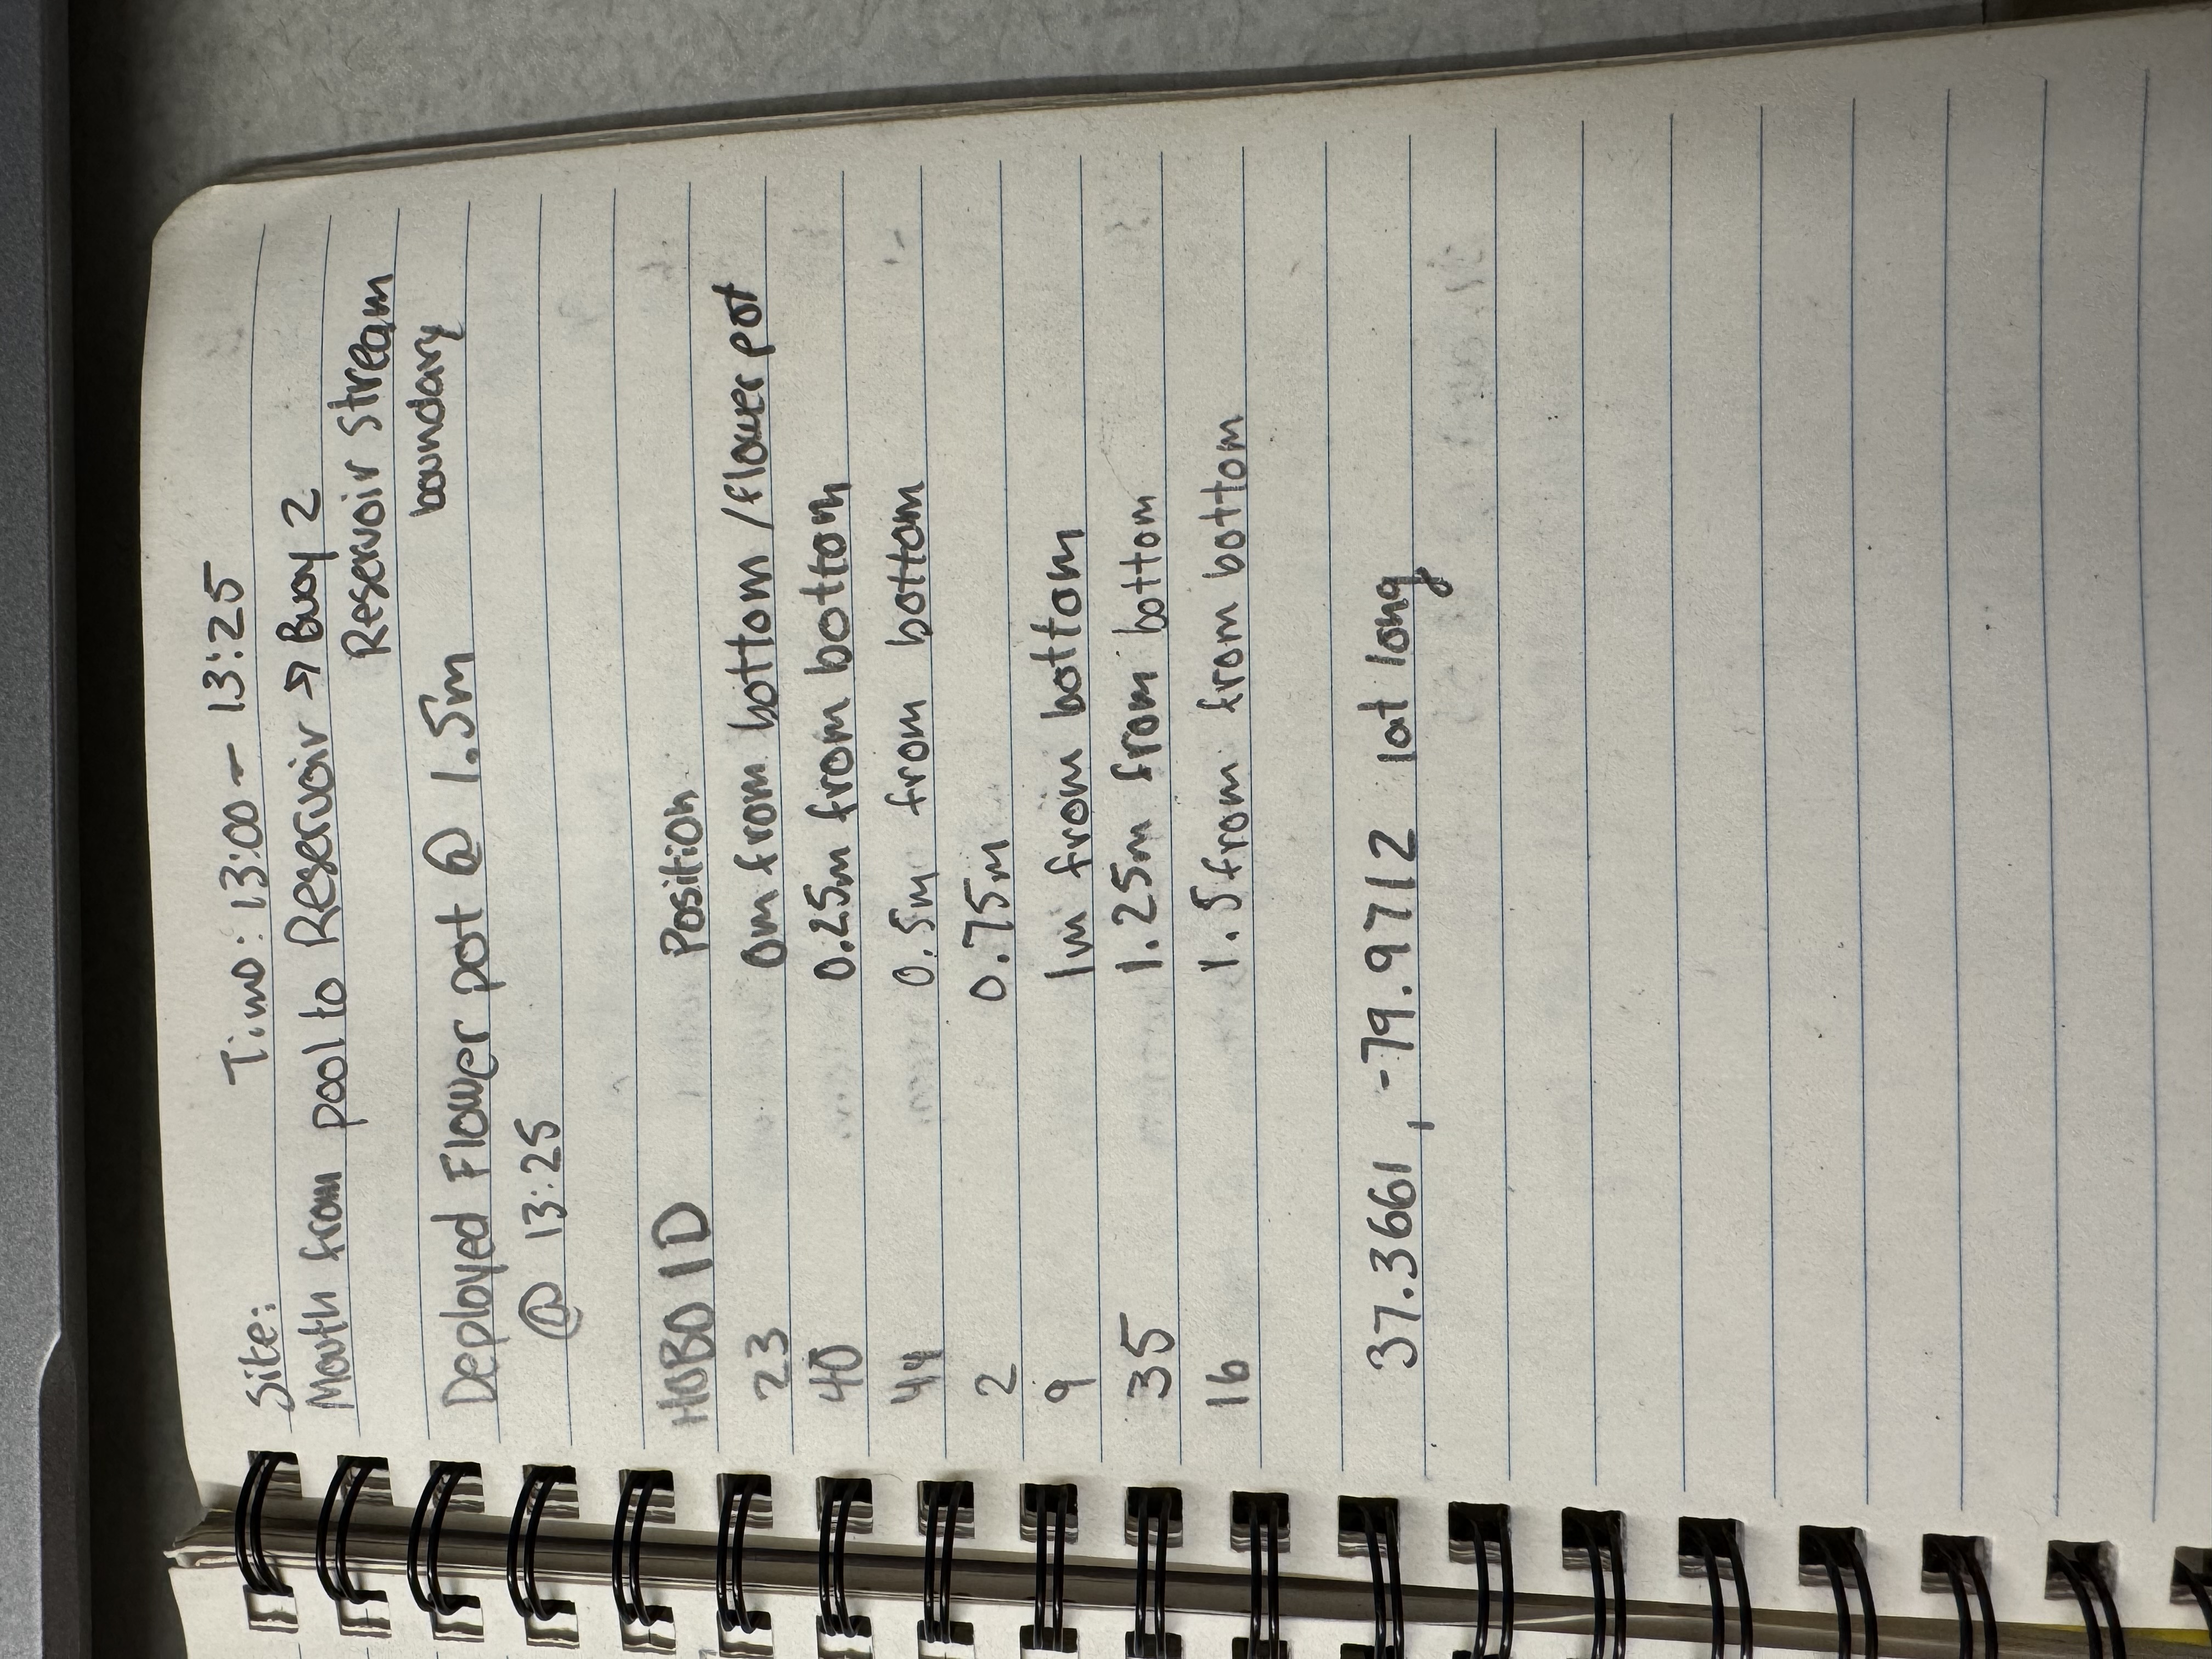 Site: Time: 13:00 - 13:25
Mouth from pool to Reservoir → Buoy 2
Reservoir Stream
boundary
Deployed Flower pot @ 1.5m
@ 13:25
HOBO ID Position
23 0m from bottom / flower pot
40 0.25m from bottom
44 0.5m from bottom
2 0.75m
9 1m from bottom
35 1.25m from bottom
16 1.5 from from bottom
37.3661, -79.9712 lat long